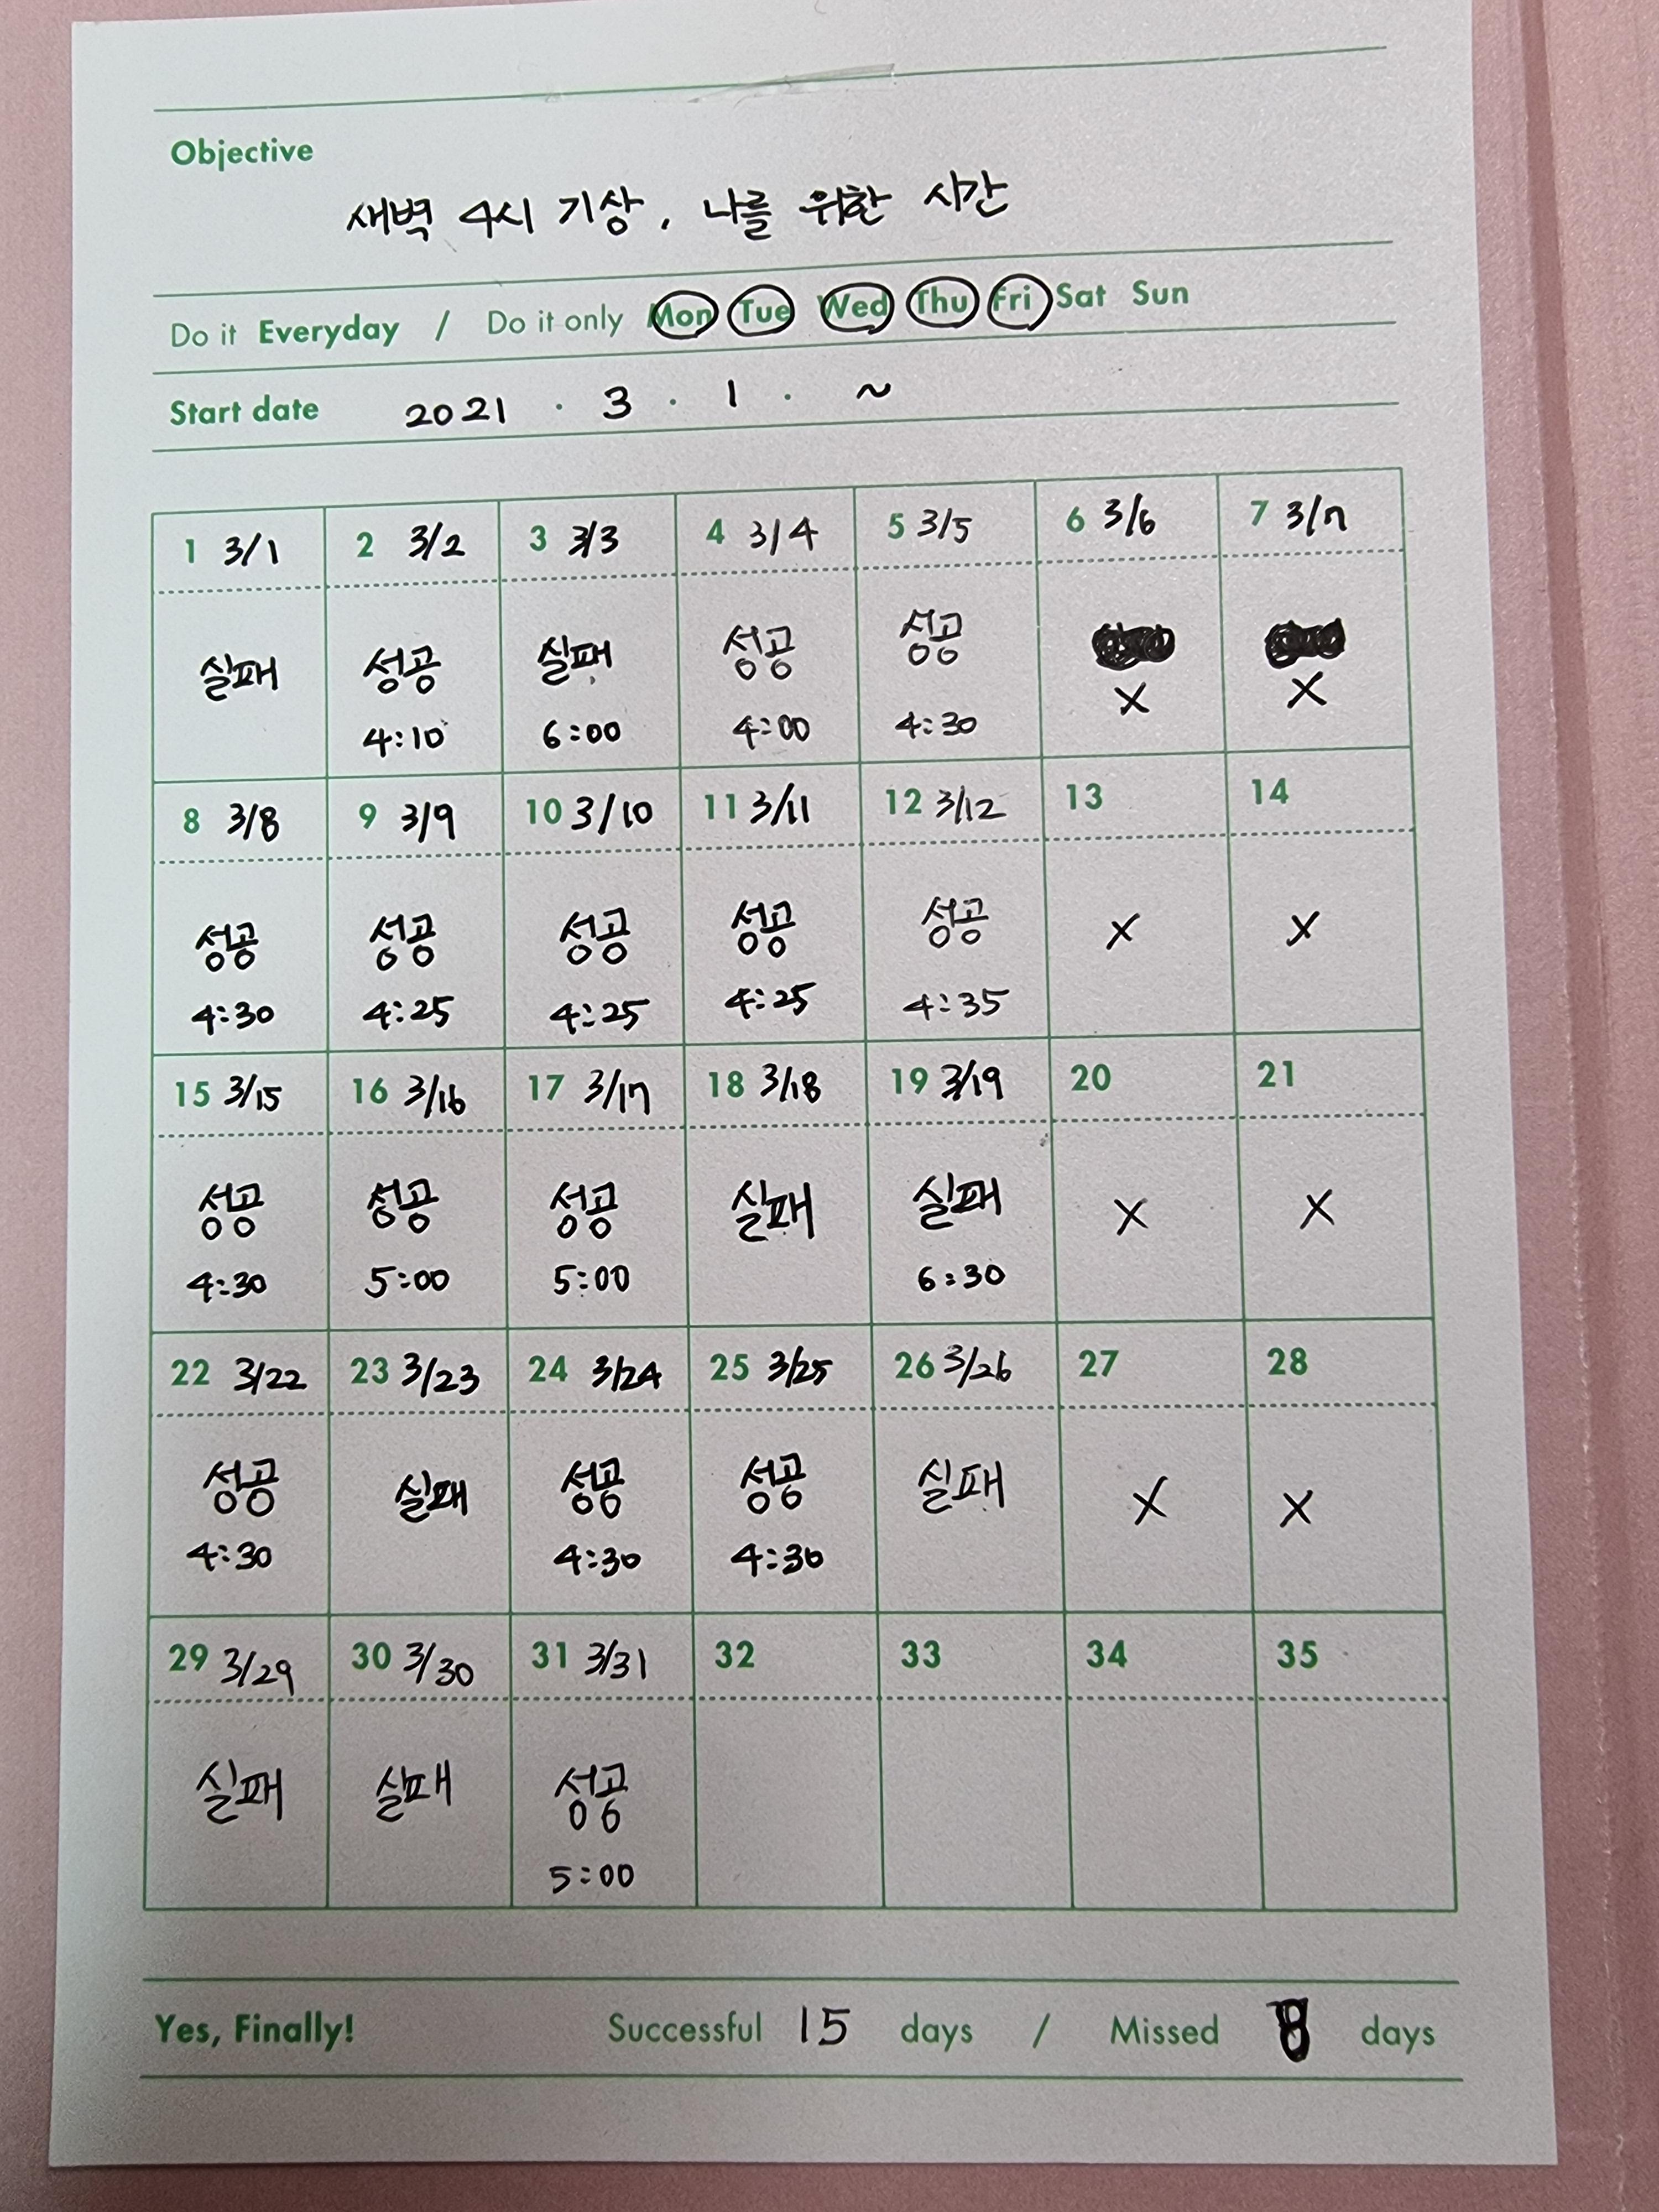 Objective
새벽 4시 기상, 나를 위한 시간
Do it Everyday / Do it only Mon Tue Wed Thu Fri Sat Sun
Start date 2021 · 3 · 1 · ~
1 3/1 2 3/2 3 3/3 4 3/4 5 3/5 6 3/6 7 3/7
실패 성공 실패 성공 성공 X X
4:10 6:00 4:00 4:30
8 3/8 9 3/9 10 3/10 11 3/11 12 3/12 13 14
성공 성공 성공 성공 성공 X X
4:30 4:25 4:25 4:25 4:35
15 3/15 16 3/16 17 3/17 18 3/18 19 3/19 20 21
성공 성공 성공 실패 실패 X X
4:30 5:00 5:00 6:30
22 3/22 23 3/23 24 3/24 25 3/25 26 3/26 27 28
성공 실패 성공 성공 실패 X X
4:30 4:30 4:30
29 3/29 30 3/30 31 3/31 32 33 34 35
실패 실패 성공
5:00
Yes, Finally! Successful 15 days / Missed 8 days